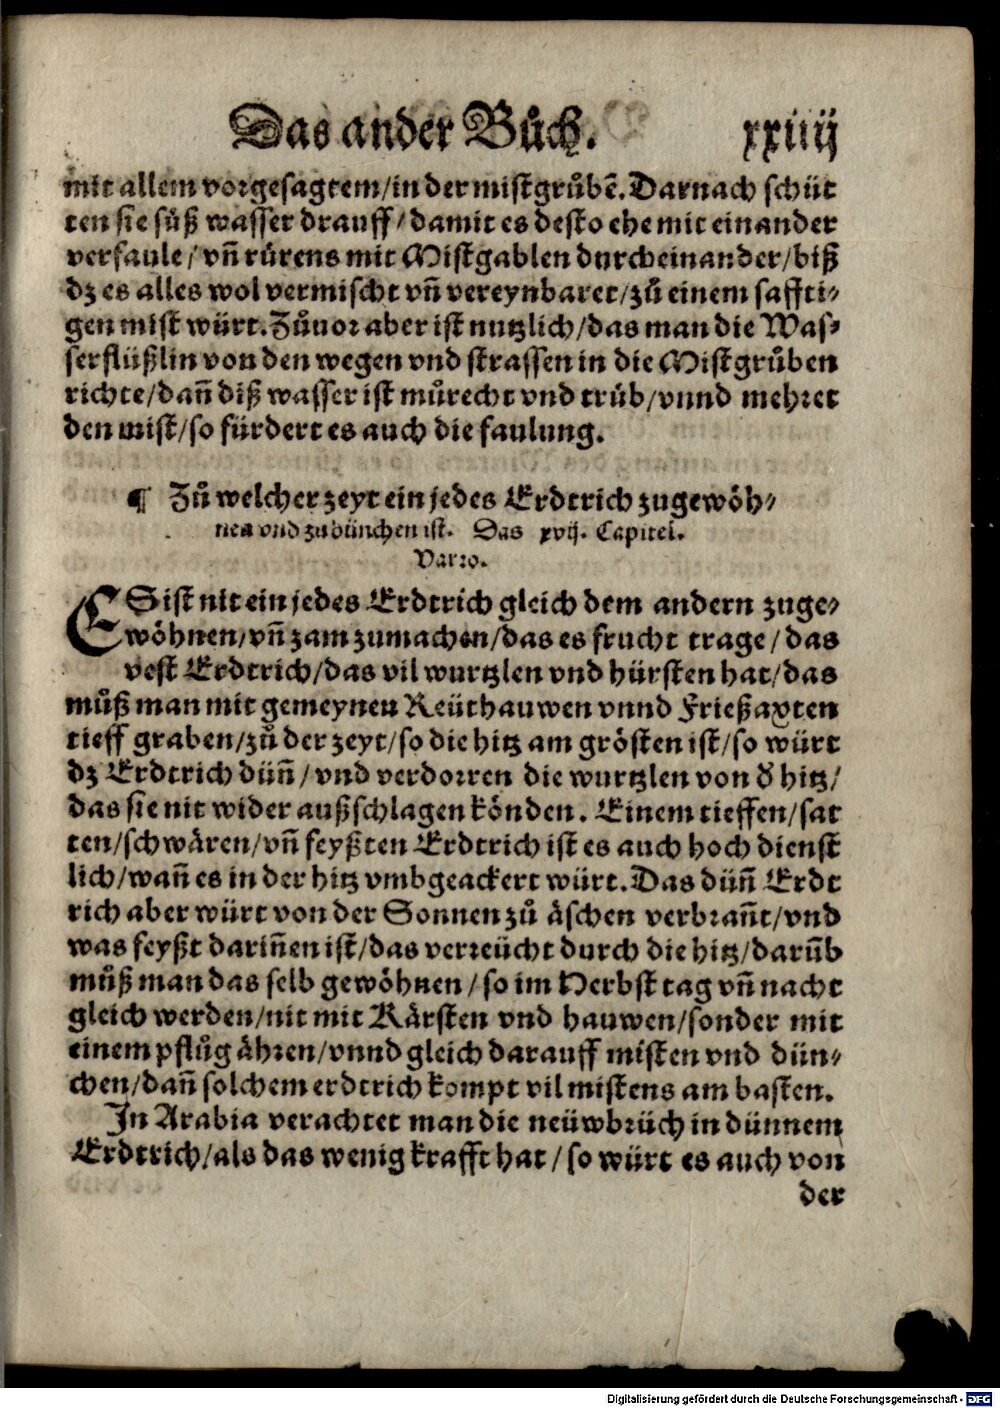 Das ander Bůch. xxiiij
mit allem vorgesagtem/in der mistgrůbẽ. Darnach schüt
ten sie süß wasser drauff/damit es desto ehe mit einander
verfaule/vñ rürens mit Mistgablen durcheinander/biß
dz es alles wol vermischt vñ vereynbaret/zů einem saffti⸗
gen mist würt. Zůuor aber ist nutzlich/das man die Was⸗
serflüßlin von den wegen vnd strassen in die Mistgrůben
richte/dañ diß wasser ist můrecht vnd trüb/vnnd mehret
den mist/so fürdert es auch die faulung.
¶ Zů welcher zeyt ein jedes Erdtrich zugewöh⸗
nen vnd zu dünchen ist. Das xvij. Capitel.
Varro.
ES ist nit ein jedes Erdtrich gleich dem andern zuge⸗
wöhnen/vñ zam zumachen/das es frucht trage/das
vest Erdtrich/das vil wurtzlen vnd hürsten hat/das
můß man mit gemeynen Reüthauwen vnnd Frießaxten
tieff graben/zů der zeyt/so die hitz am grösten ist/so würt
dz Erdtrich düñ/vnd verdorren die wurtzlen von ď hitz/
das sie nit wider außschlagen könden. Einem tieffen/sat
ten/schwären/vñ feyßten Erdtrich ist es auch hoch dienst
lich/wañ es in der hitz vmbgeackert würt. Das düñ Erdt
rich aber würt von der Sonnen zů äschen verbrañt/vnd
was feyßt dariñen ist/das verreücht durch die hitz/darũb
můß man das selb gewöhnen/so im Herbst tag vñ nacht
gleich werden/nit mit Kärsten vnd hauwen/sonder mit
einem pflůg ähren/vnnd gleich darauff misten vnd dün⸗
chen/dañ solchem erdtrich kompt vil mistens am basten.
In Arabia verachtet man die neüwbrüch in dünnem
Erdtrich/als das wenig krafft hat/so würt es auch von
der
Digitalisierung gefördert durch die Deutsche Forschungsgemeinschaft - DFG